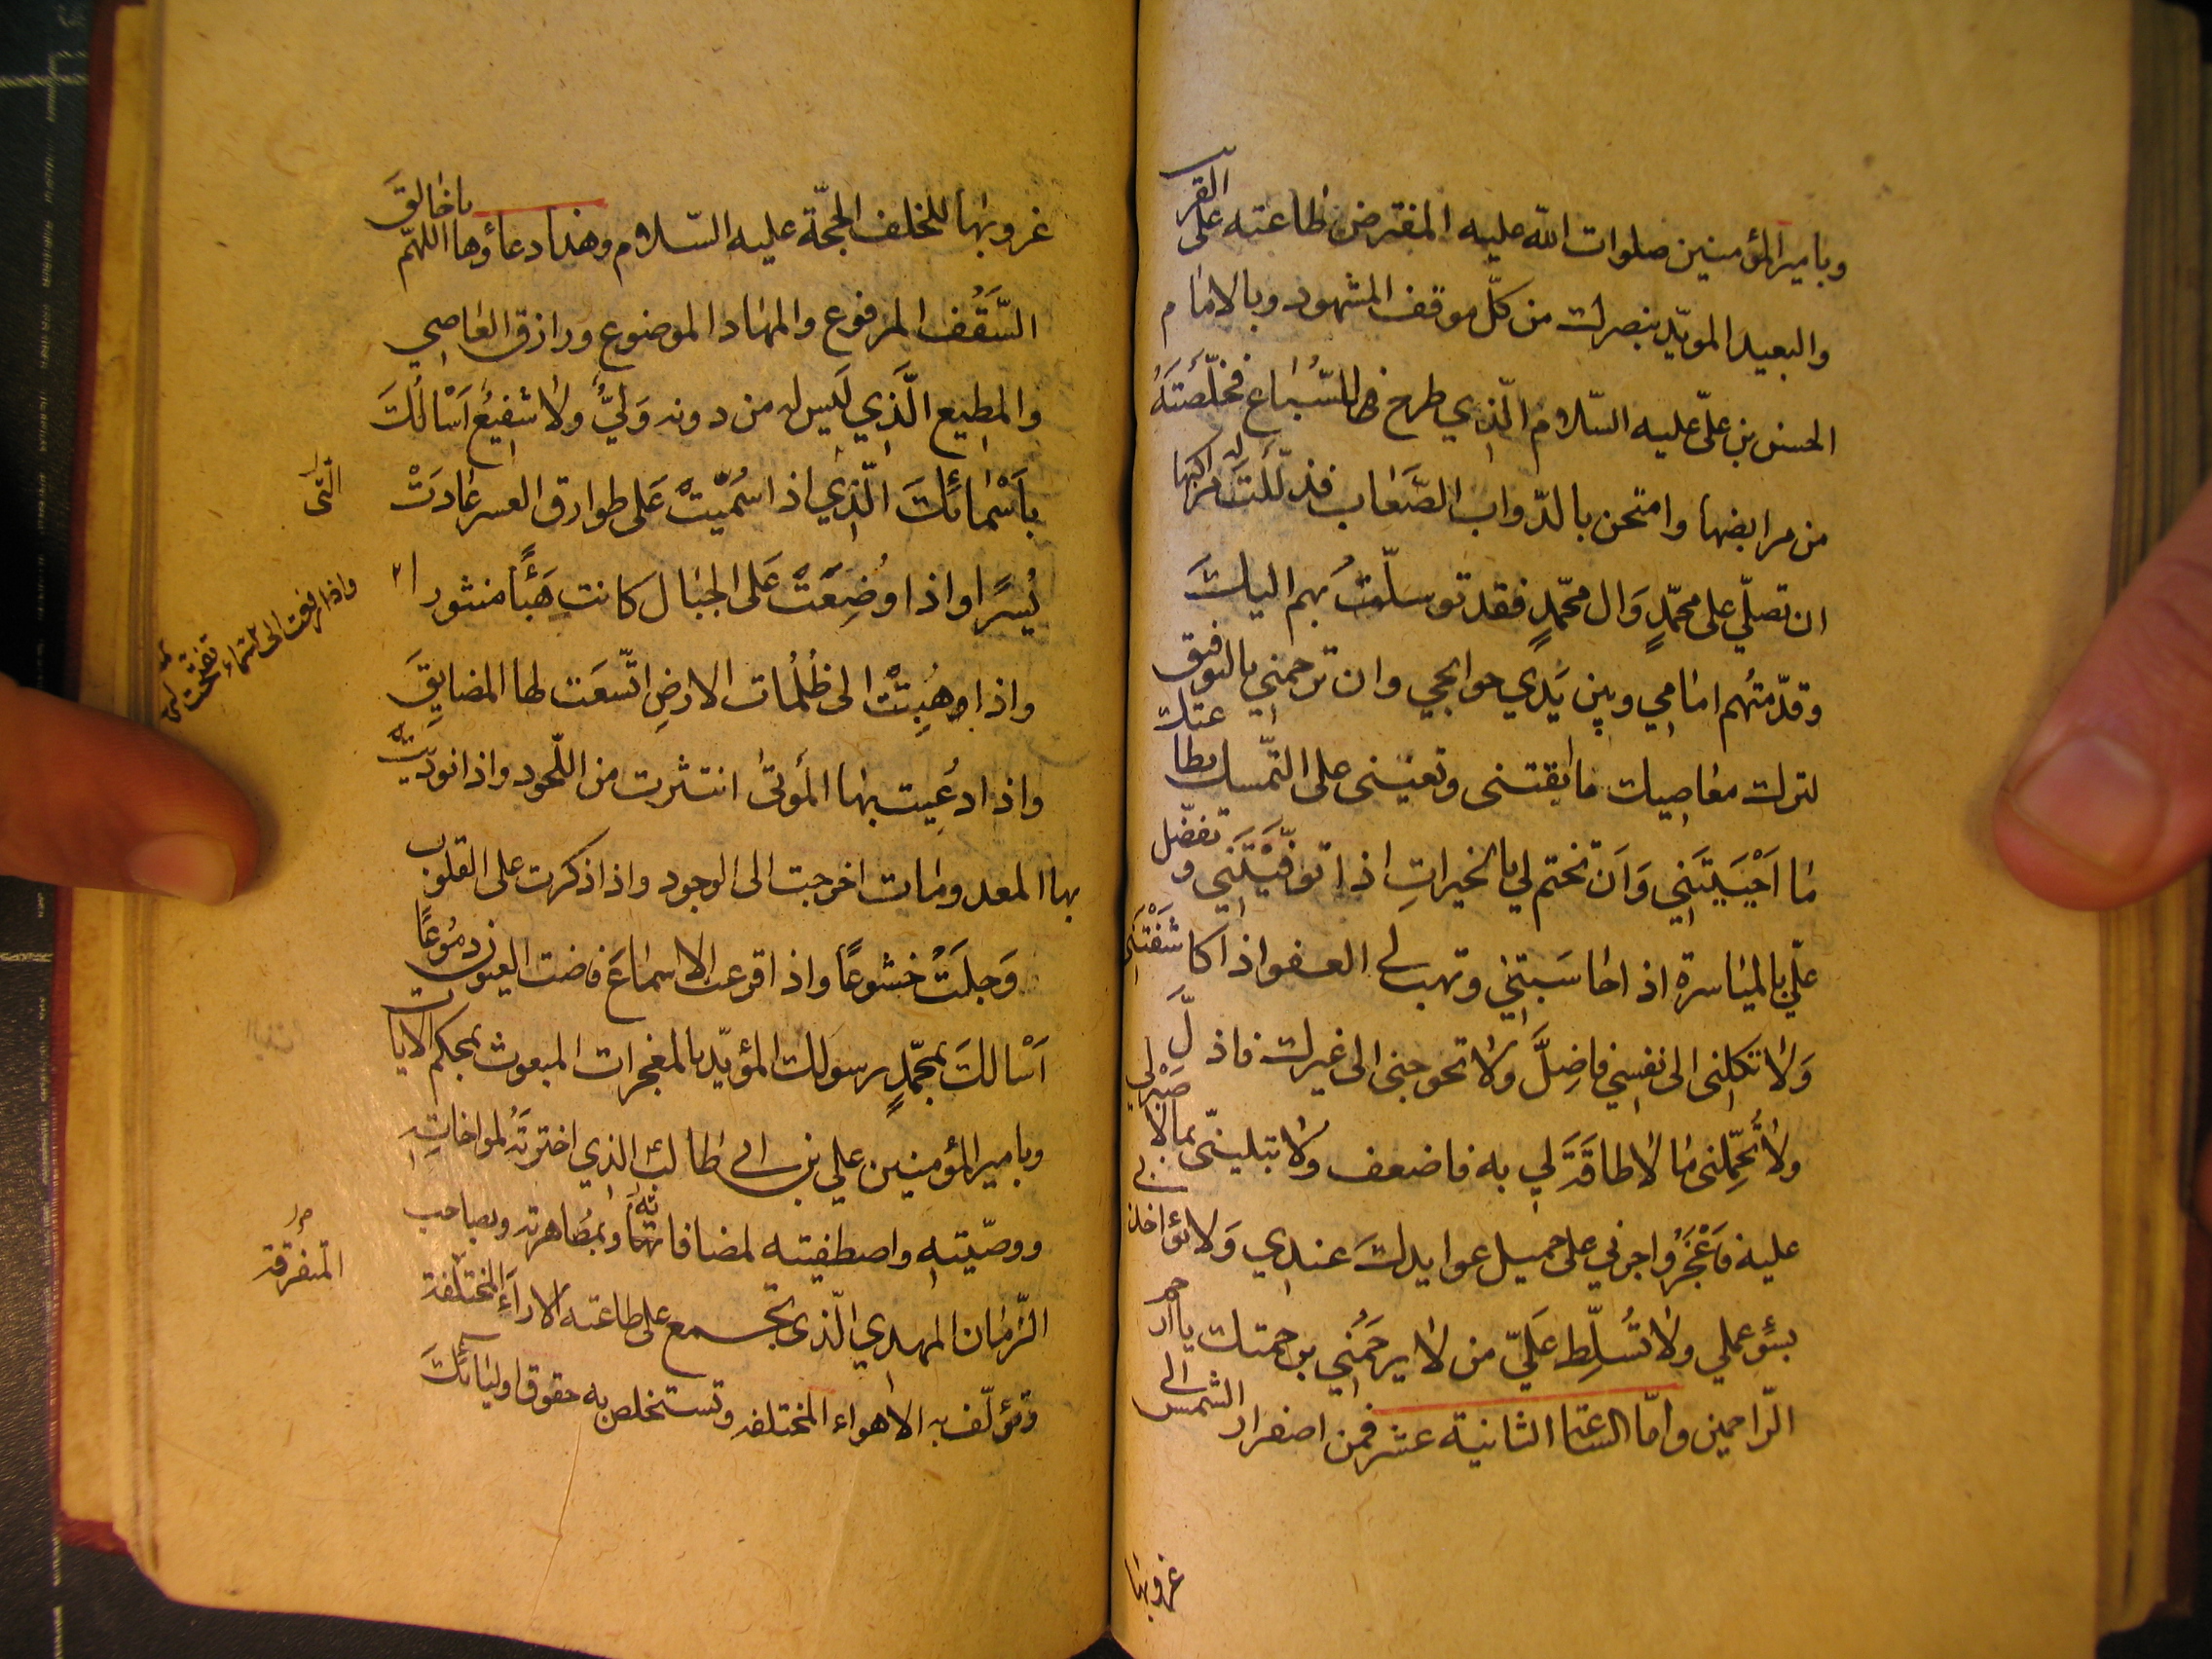 وبامير المؤمنين صلوات الله عليه المفترض طاعته على القريب
والبعيد المويّد بنصرك من كلّ موقف المشهود وبالامام
الحسن بن علىّ عليه السّلام الّذي طرح للسّباع فخلّصته
من مرابضها وامتحن بالدّواب الصّعاب فذلّلت له مراكبها
ان تصلّي على محمّدٍ وَال محمّدٍ فقد توسلّت بهم اليك
وقدّمتهم امامي وبين يَدي حوائجي وان ترحمني بالتوفيق
لترك معاصيك ما ابقتنى وتعيننى على التمّسك بطاعتك
مَا اَحْيَيتَنِي وَاَن تختم لي بالخيراتِ اذا توفّيْتَنِي وتفضّل
علّي بالمياسرة اذا حاسَبتني وتهب لي العفو اذا كاشَفْتَنى
وَلا تكلنى الى نفسي فاضِلَّ ولا تحوجنى الى غيرك فاذلَّ
ولا تُحَمِّلنى ما لا طاقَةَ لي به فاضعف ولا تبتلينى بما لا صَبْر لي
عليه فاَعْجَزُ واجرني على جميل عوايدكَ عندي وَلا تؤاخذنى
بسُوء عملي ولا تُسَلِّط عَلَيّ من لا يرحَمُني برحمتك يا ارحم
الّراحمين وامّا الساعة الثانية عشر فمن اصفرار الشمس الى
غروبها
غروبها للخلف الحجّة عليه السّلام وهذا دعاؤها اللهمّ يا خالقَ
السَّقُف المرفوع والمهاد الموضوع ورازق العاصي
والمطيع الَّذي لَيس له من دونه وَليٌّ ولا شفيعُ اَسْالُكَ
باَسْمائكَ الّذِي اذا سُمّيتْ عَلى طوارق العسر عادَتْ
التى
يُسرًا واذا وُضِعَتْ عَلى الجبال كانت هَبَاءً منثورا
واذا رفعت الى السّماء تفتحت لها
واذا وهُبِتْت الى ظُلُمات الارضِ اتّسعَت لها المضايقَ
واذا دعُيت بها المَوتى انتشرت من اللّحود واذا نوديتْ
بها المعدومات اخرجت الى الوجود واذا ذكرت على القلوب
وَجلَتْ خشوعًا واذا قرعت الاسماعَ فاضت العيون دموُعًا
اَسْالكَ بمحمّدٍ رسولك المؤيّد بالمعجزات المبعوث بمحكم الايات
وبامير المؤمنين علي بن ابى طالب الذي اخترتَهُ لمواخاتِه
ووصّيتهِ واصطفيته لمضافاته وبمُصاهرته وبصاحب
الزّمان المهدي الّذى تجمع على طاعته الاراءَ المختلفة
المتفرقة
وتؤلّف به الاهواء المختلفه وتستخلص به حقوق اوليائكَ